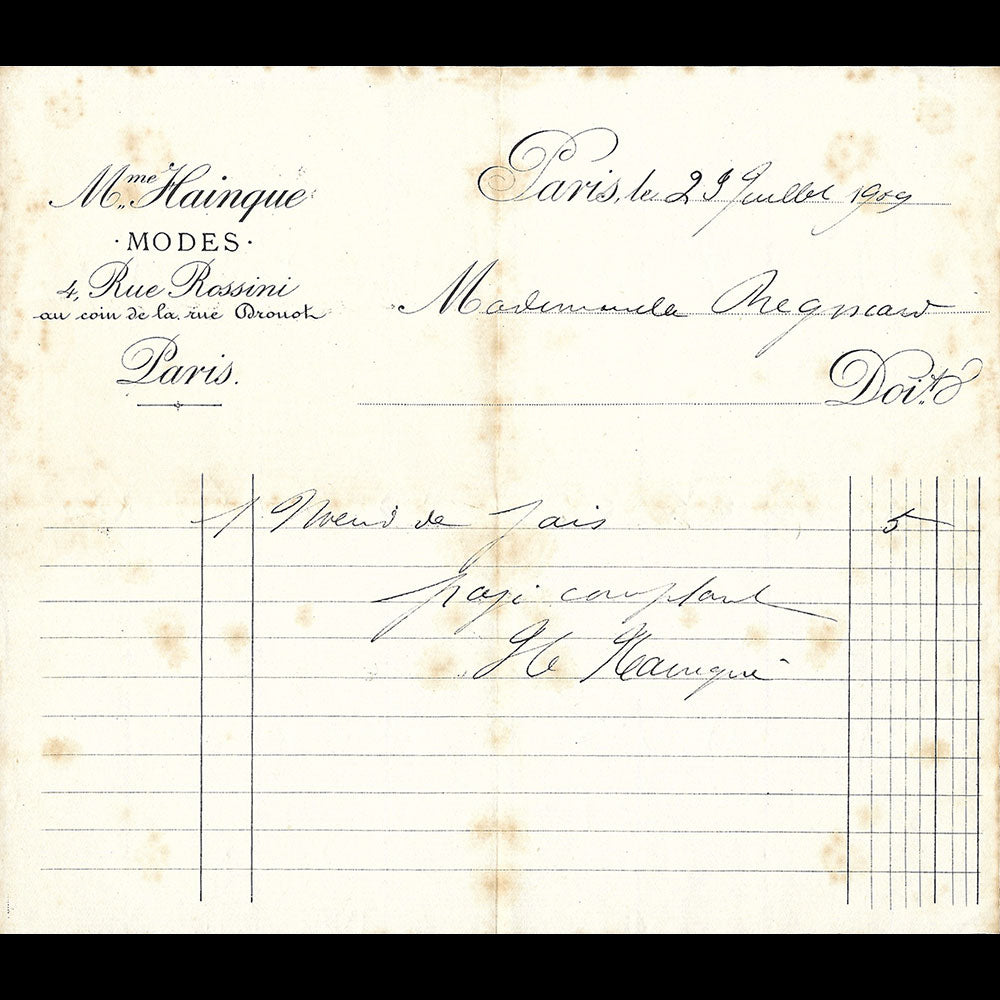 Mme Hainque
·MODES·
4, Rue Rossini
au coin de la rue Drouot
Paris.
Paris, le 29 Juillet 1909
Mademoiselle Regnard
Doit
1 Noeud de jais 5
payé comptant
Hainque